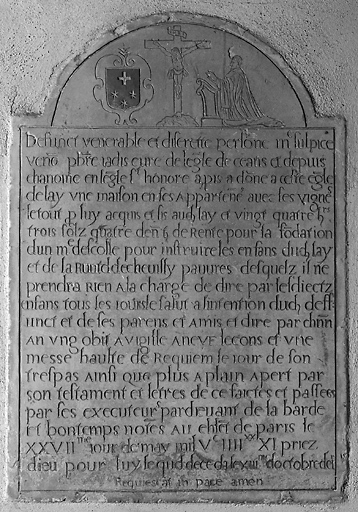 Deffunct venerable et discrette persone mr sulpice
vero pbre iadis cure de lesgle de ceans et depuis
chanoine en lesgle st honore a pis a done a ceste esgle
de lay vne maison en ses appartene avec ses vigne
le tout p luy acquis et sis aud lay et vingt quatre
trois solz quatre den de Rente pour la fodation
dun me descolle pour instruire les enfans dud lay
et de la Runte de cheuilly pauures desquelz il ne
prendra Rien a la charge de dire par lesdictz
enfans tous les iours le salut a lintention dud deff
unct et de ses parens et amis et dire par chnn
an vng obit a vigille a neuf lecons et vne
messe haulte de Requiem le iour de son
trespas ainsi que plus a plain apert par
son testament et letres de ce faictes et passees
par ses executeurs pardeuant de la barde
et bontemps notes au chlet de paris le
XXVII me iour de may mil Vc IIII XX XI priez
dieu pour luy leql deceda le xiii me doctobre
Requiescat in pace amen